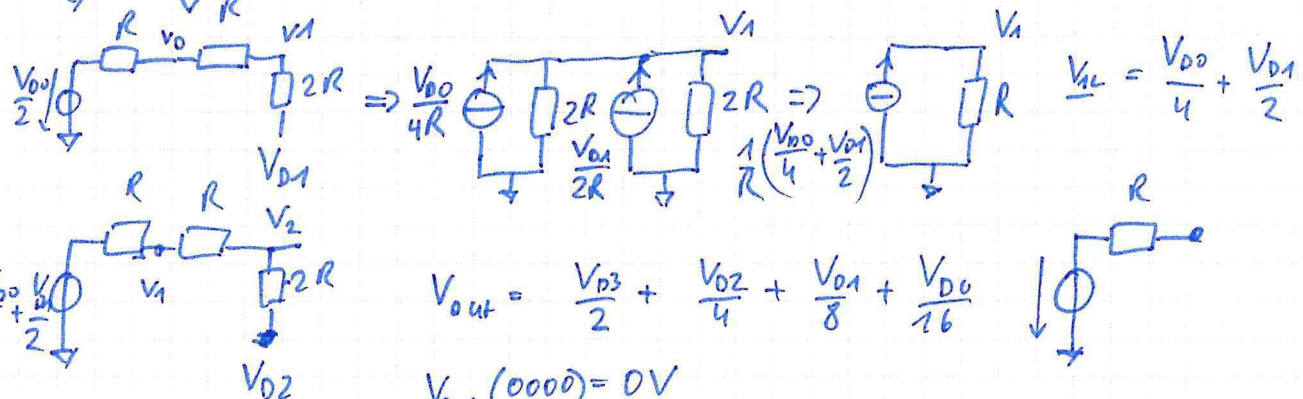 R
R
V0
V1
VD0/2
2R
VD1
=> VD0/4R
2R
VD1/2R
2R
V1
=>
1/R(VD0/4 + VD1/2)
R
V1
V1L = VD0/4 + VD1/2
R
R
V2
V1
2R
VD2
Vout = VD3/2 + VD2/4 + VD1/8 + VD0/16
R
(0000) = 0V